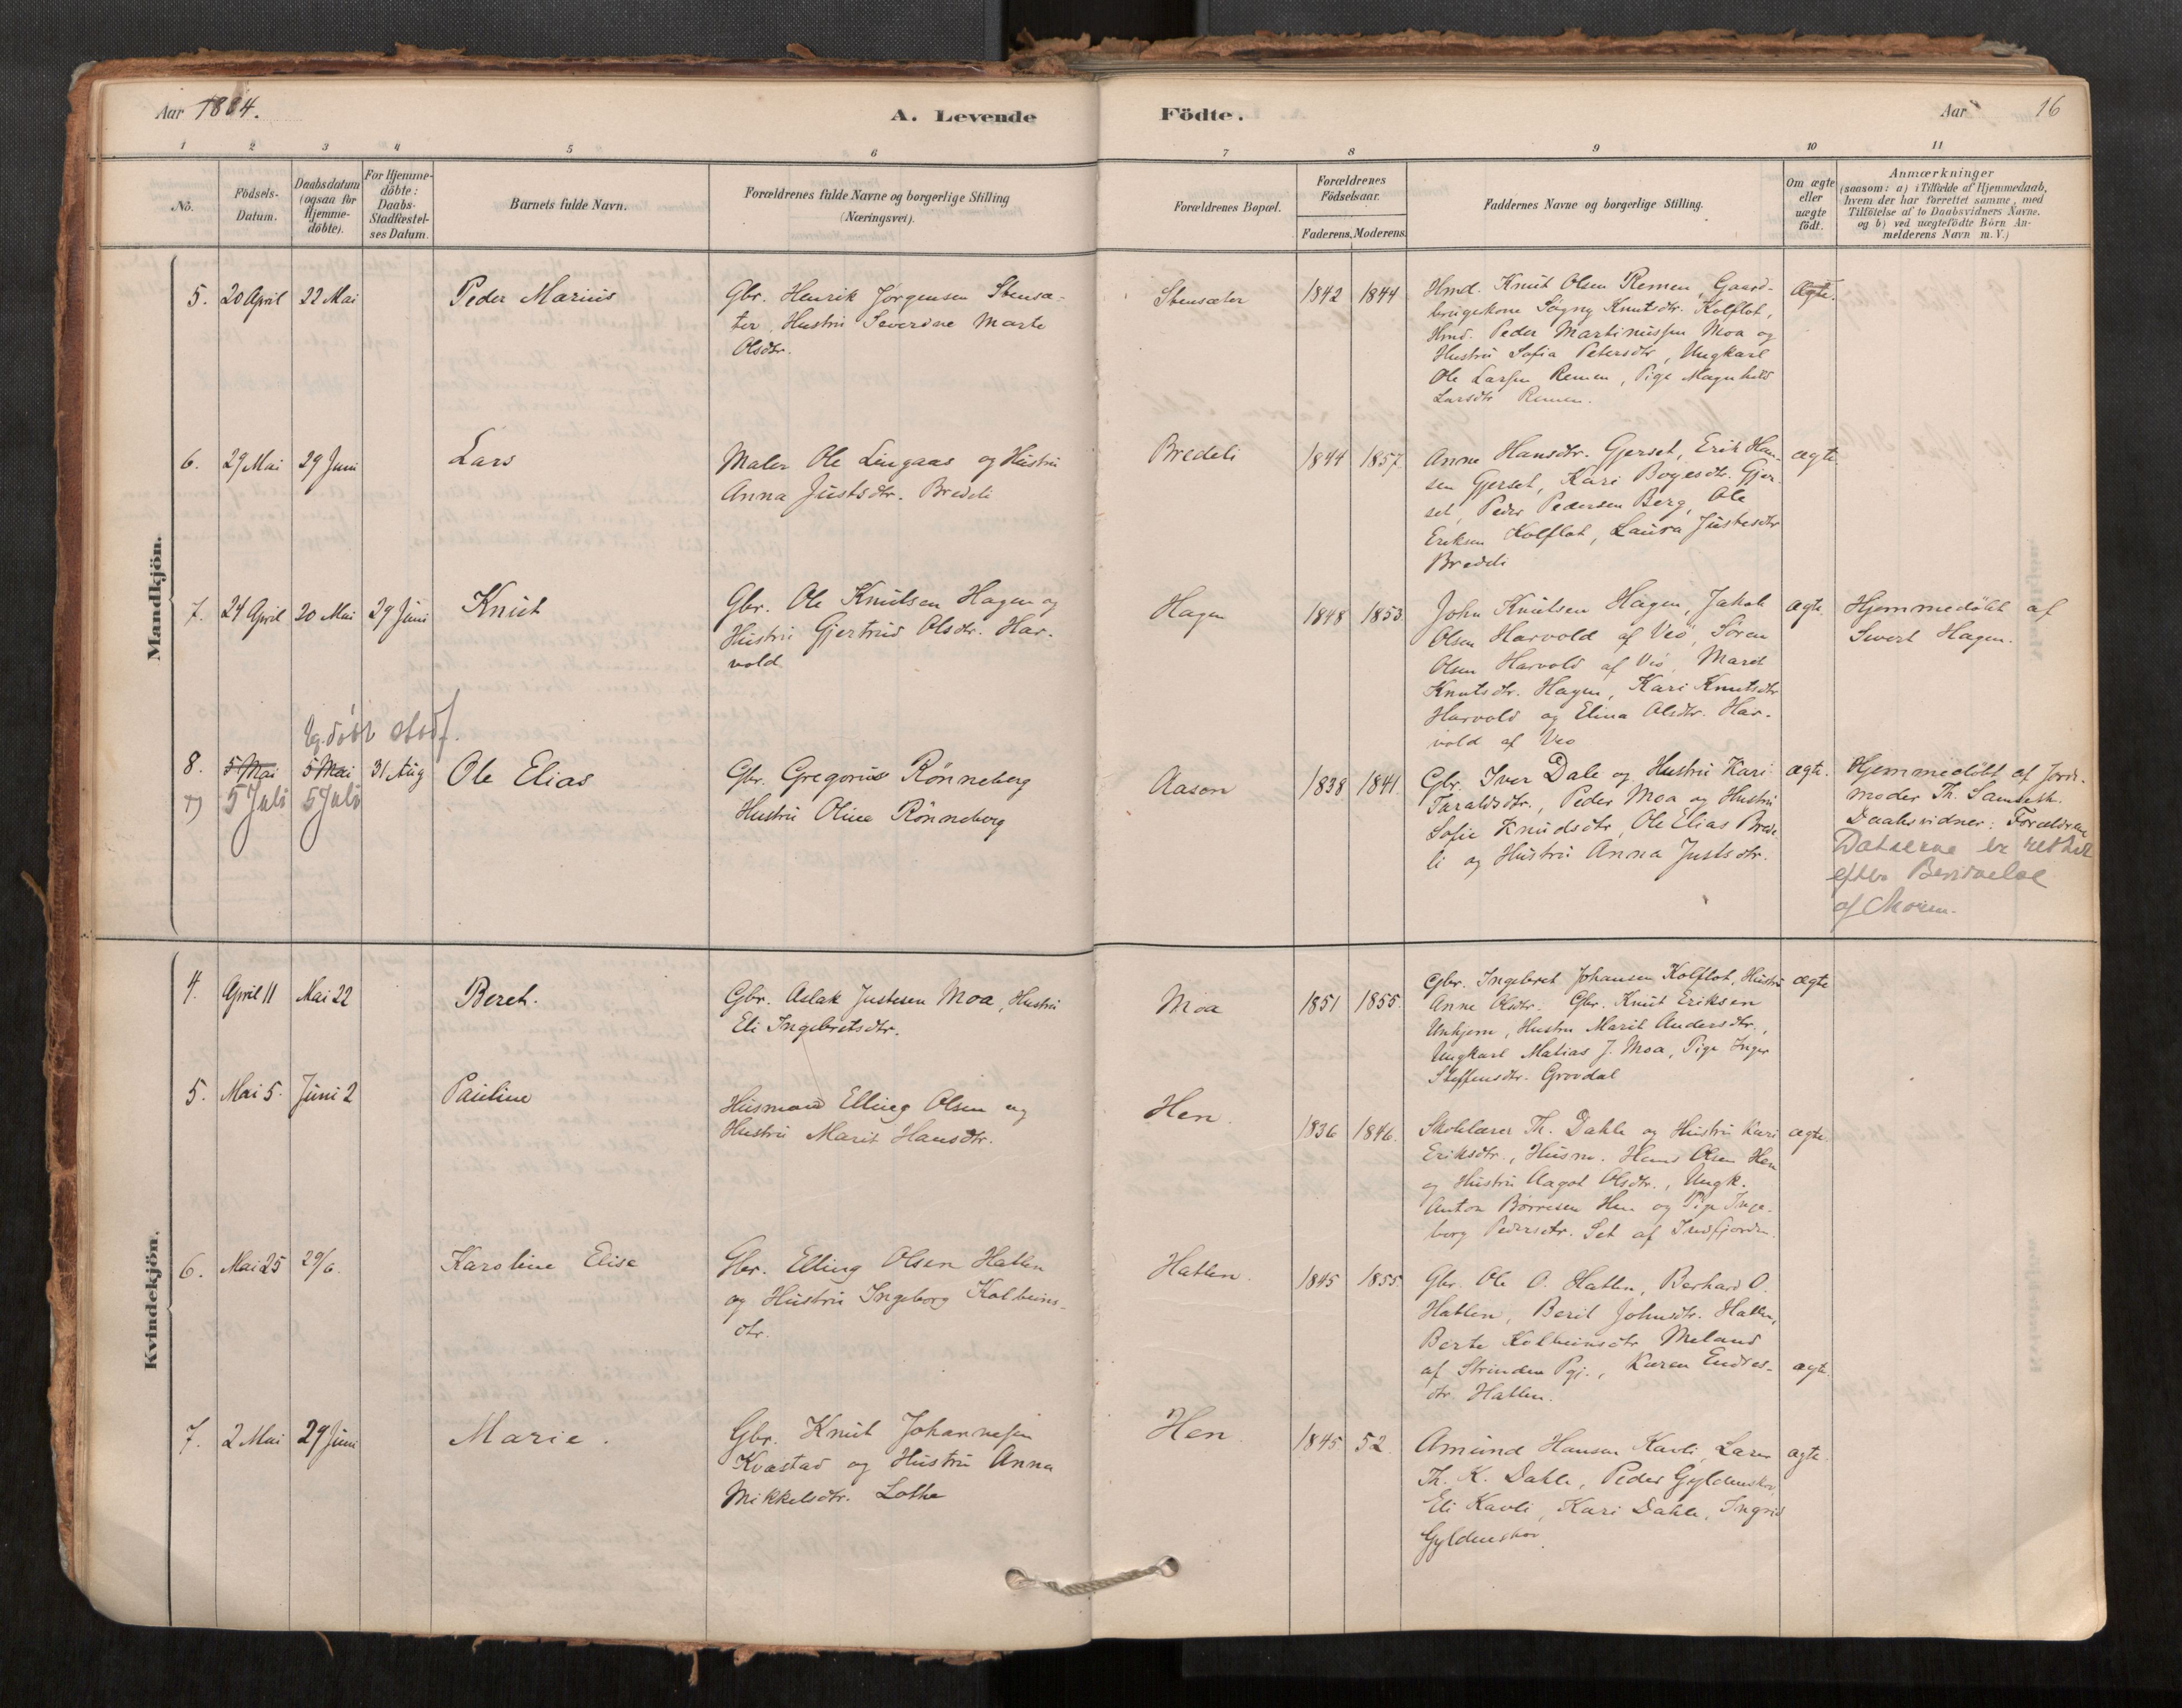 Aar 1884.
A. Levende
Födte.
Aar
16
1
2
3
4
5
6
7
8
9
10
11
No.
Födsels-
Datum.
Daabsdatum
(ogsaa for
Hjemme-
döbte).
For Hjemme-
döbte:
Daabs-
Stadfæstel-
ses Datum.
Barnets fulde Navn.
Forældrenes fulde Navne og borgerlige Stilling
(Næringsvei).
Forældrenes Bopæl.
Forældrenes
Födselsaar.
Faderens. Moderens.
Faddernes Navne og borgerlige Stilling.
Om ægte
eller
uægte
födt.
Anmærkninger
(saasom: a) i Tilfælde af Hjemmedaab,
hvem der har forrettet samme, med
Tilföielse af to Daabsvidners Navne.
og b) ved uægtefödte Börn An-
melderens Navn m. V.)
Mandkjön.
5. 20 April 22 Mai
Peder Marius
Gbr. Henrik Jørgensen Stensæ-
ter, Hustru Severine Marte
Olsdtr.
Stensæter
1842 1844
Hmd. Knut Olsen Remen, Gaard-
brugerkone Sögny Knutsdtr. Kolflot,
Hmd. Peder Martinussen Moa og
Hustru Sofia Petersdtr, Ungkarl
Ole Larsen Remen, Pige Magnhild
Larsdtr Remen.
Ægte.
6. 29 Mai 29 Juni
Lars
Maler Ole Lingaas og Hustru
Anna Justsdtr. Bredeli
Bredeli
1844 1857.
Anne Hansdtr. Gjerset, Erik Han-
sen Gjerset, Kari Boyesdtr. Gjer-
set, Peder Pedersen Berg, Ole
Eriksen Kolflot, Laura Justesdtr
Bredeli
ægte.
7. 24 April 20 Mai 29 Juni
Knut
Gbr. Ole Knutsen Hagen og
Hustru Gjertrud Olsdtr. Har-
vold
Hagen
1848 1853
John Knutsen Hagen, Jakob
Olsen Harvold af Veö, Sören
Olsen Harvold af Veö, Marit
Knutsdtr. Hagen, Kari Knutsdtr
Harvold og Elina Olsdtr. Har-
vold af Veö
ægte.
Hjemmedöbt af
Sivert Hagen.
8. 5 Mai 5 Mai 31 Aug
5 Juli 5 Juli
Ole Elias
Gbr. Gregorius Rönneberg
Hustru Oline Rönneberg
Aasen
1838 1841.
Gbr. Iver Dale og Hustru Kari
Taraldsdtr., Peder Moa og Hustru
Sofie Knudsdtr, Ole Elias Brede
li og Hustru Anna Justsdtr.
ægte.
Hjemmedöbt af Jord-
moder Th. Samseth.
Daabsvidner: Forældrene
Datoerne er rettet
efter
af Moren.
Kvindekjön.
4. April 11 Mai 22
Bereth.
Gbr. Aslak Justesen Moa, Hustru
Eli Ingebretsdtr.
Moa
1851 1855.
Gbr. Ingebret Johansen Kolflot, Hustru
Anne Olsdtr. Gbr. Knut Eriksen
Unhjem, Hustru Marit Andersdtr.,
Ungkarl Matias J. Moa, Pige Inger
Steffensdtr. Grovdal
ægte
5. Mai 5. Juni 2
Pauline
Husmand Elling Olsen og
Hustru Marit Hansdtr.
Hen.
1836 1846.
Skolelærer Th. Dahle og Hustru Kari
Eriksdtr., Husm. Hans Olsen Hen
og Hustru Aagot Olsdtr., Ungk.
Anton Börresen Hen og Pige Inge-
borg Pedersdtr. Set af Indfjorden.
ægte.
6. Mai 25 29/6.
Karoline Elise
Gbr. Elling Olsen Hatlen
og Hustru Ingeborg Kolbeins-
dtr.
Hatlen.
1845 1855.
Gbr. Ole O. Hatlen, Berhard O.
Hatlen, Berit Johnsdtr. Hatlen,
Berte Kolbeinsdtr Meland
af Strinden Pgj., Karen Endres-
dtr Hatlen.
ægte.
7. 2 Mai 29 Juni
Marie.
Gbr. Knut Johannesen
Kvæstad og Hustru Anna
Mikkelsdtr. Lothe
Hen.
1845 52.
Amund Hansen Kavli, Lærer
Th. K. Dahle, Peder Gyldenskov,
Eli Kavli, Kari Dahle, Ingrid
Gyldenskov.
ægte.